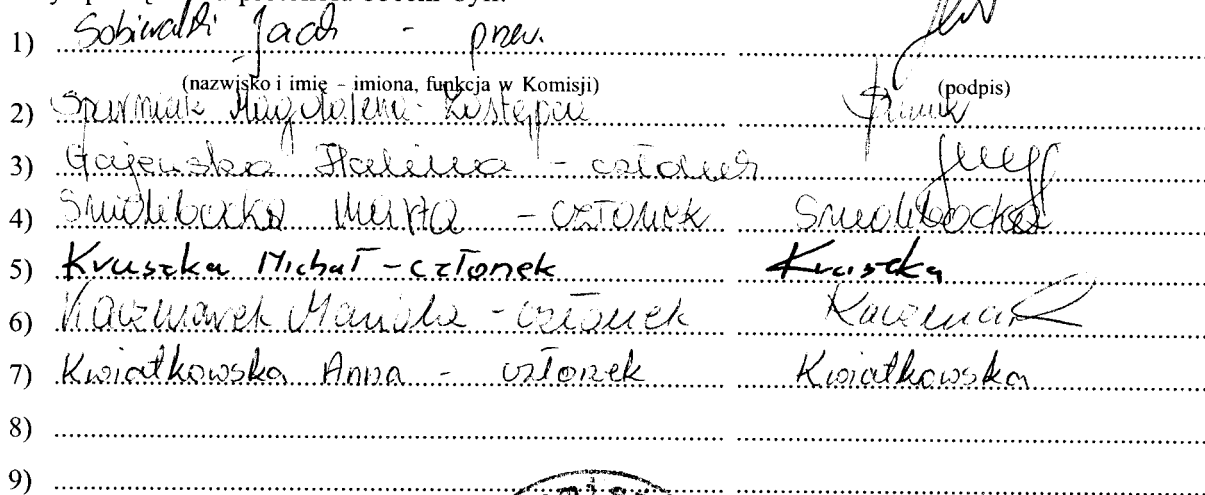 1) Sobiralski Jach - przew.
(nazwisko i imię – imiona, funkcja w Komisji) (podpis)
2) Magdalena - Zastępca
3) Gajewska Halina - członek
4) Smolibocka Marta - członek Smolibocka
5) Kruszka Michał - członek Kruszka
6) Kaczmarek Mariola - członek Kaczmarek
7) Kwiatkowska Anna - członek Kwiatkowska
8)
9)